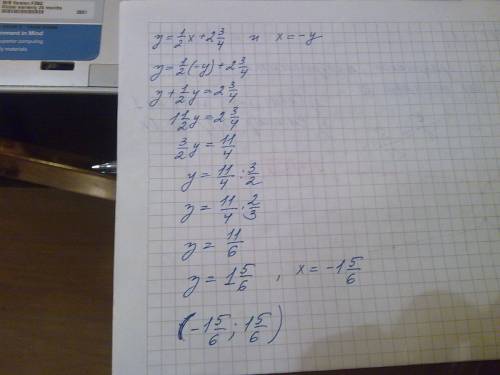 y = 1/2 x + 2 3/4 и x = -y
y = 1/2 (-y) + 2 3/4
y + 1/2 y = 2 3/4
1 1/2 y = 2 3/4
3/2 y = 11/4
y = 11/4 : 3/2
y = 11/4 · 2/3
y = 11/6
y = 1 5/6 , x = -1 5/6
(-1 5/6 ; 1 5/6)